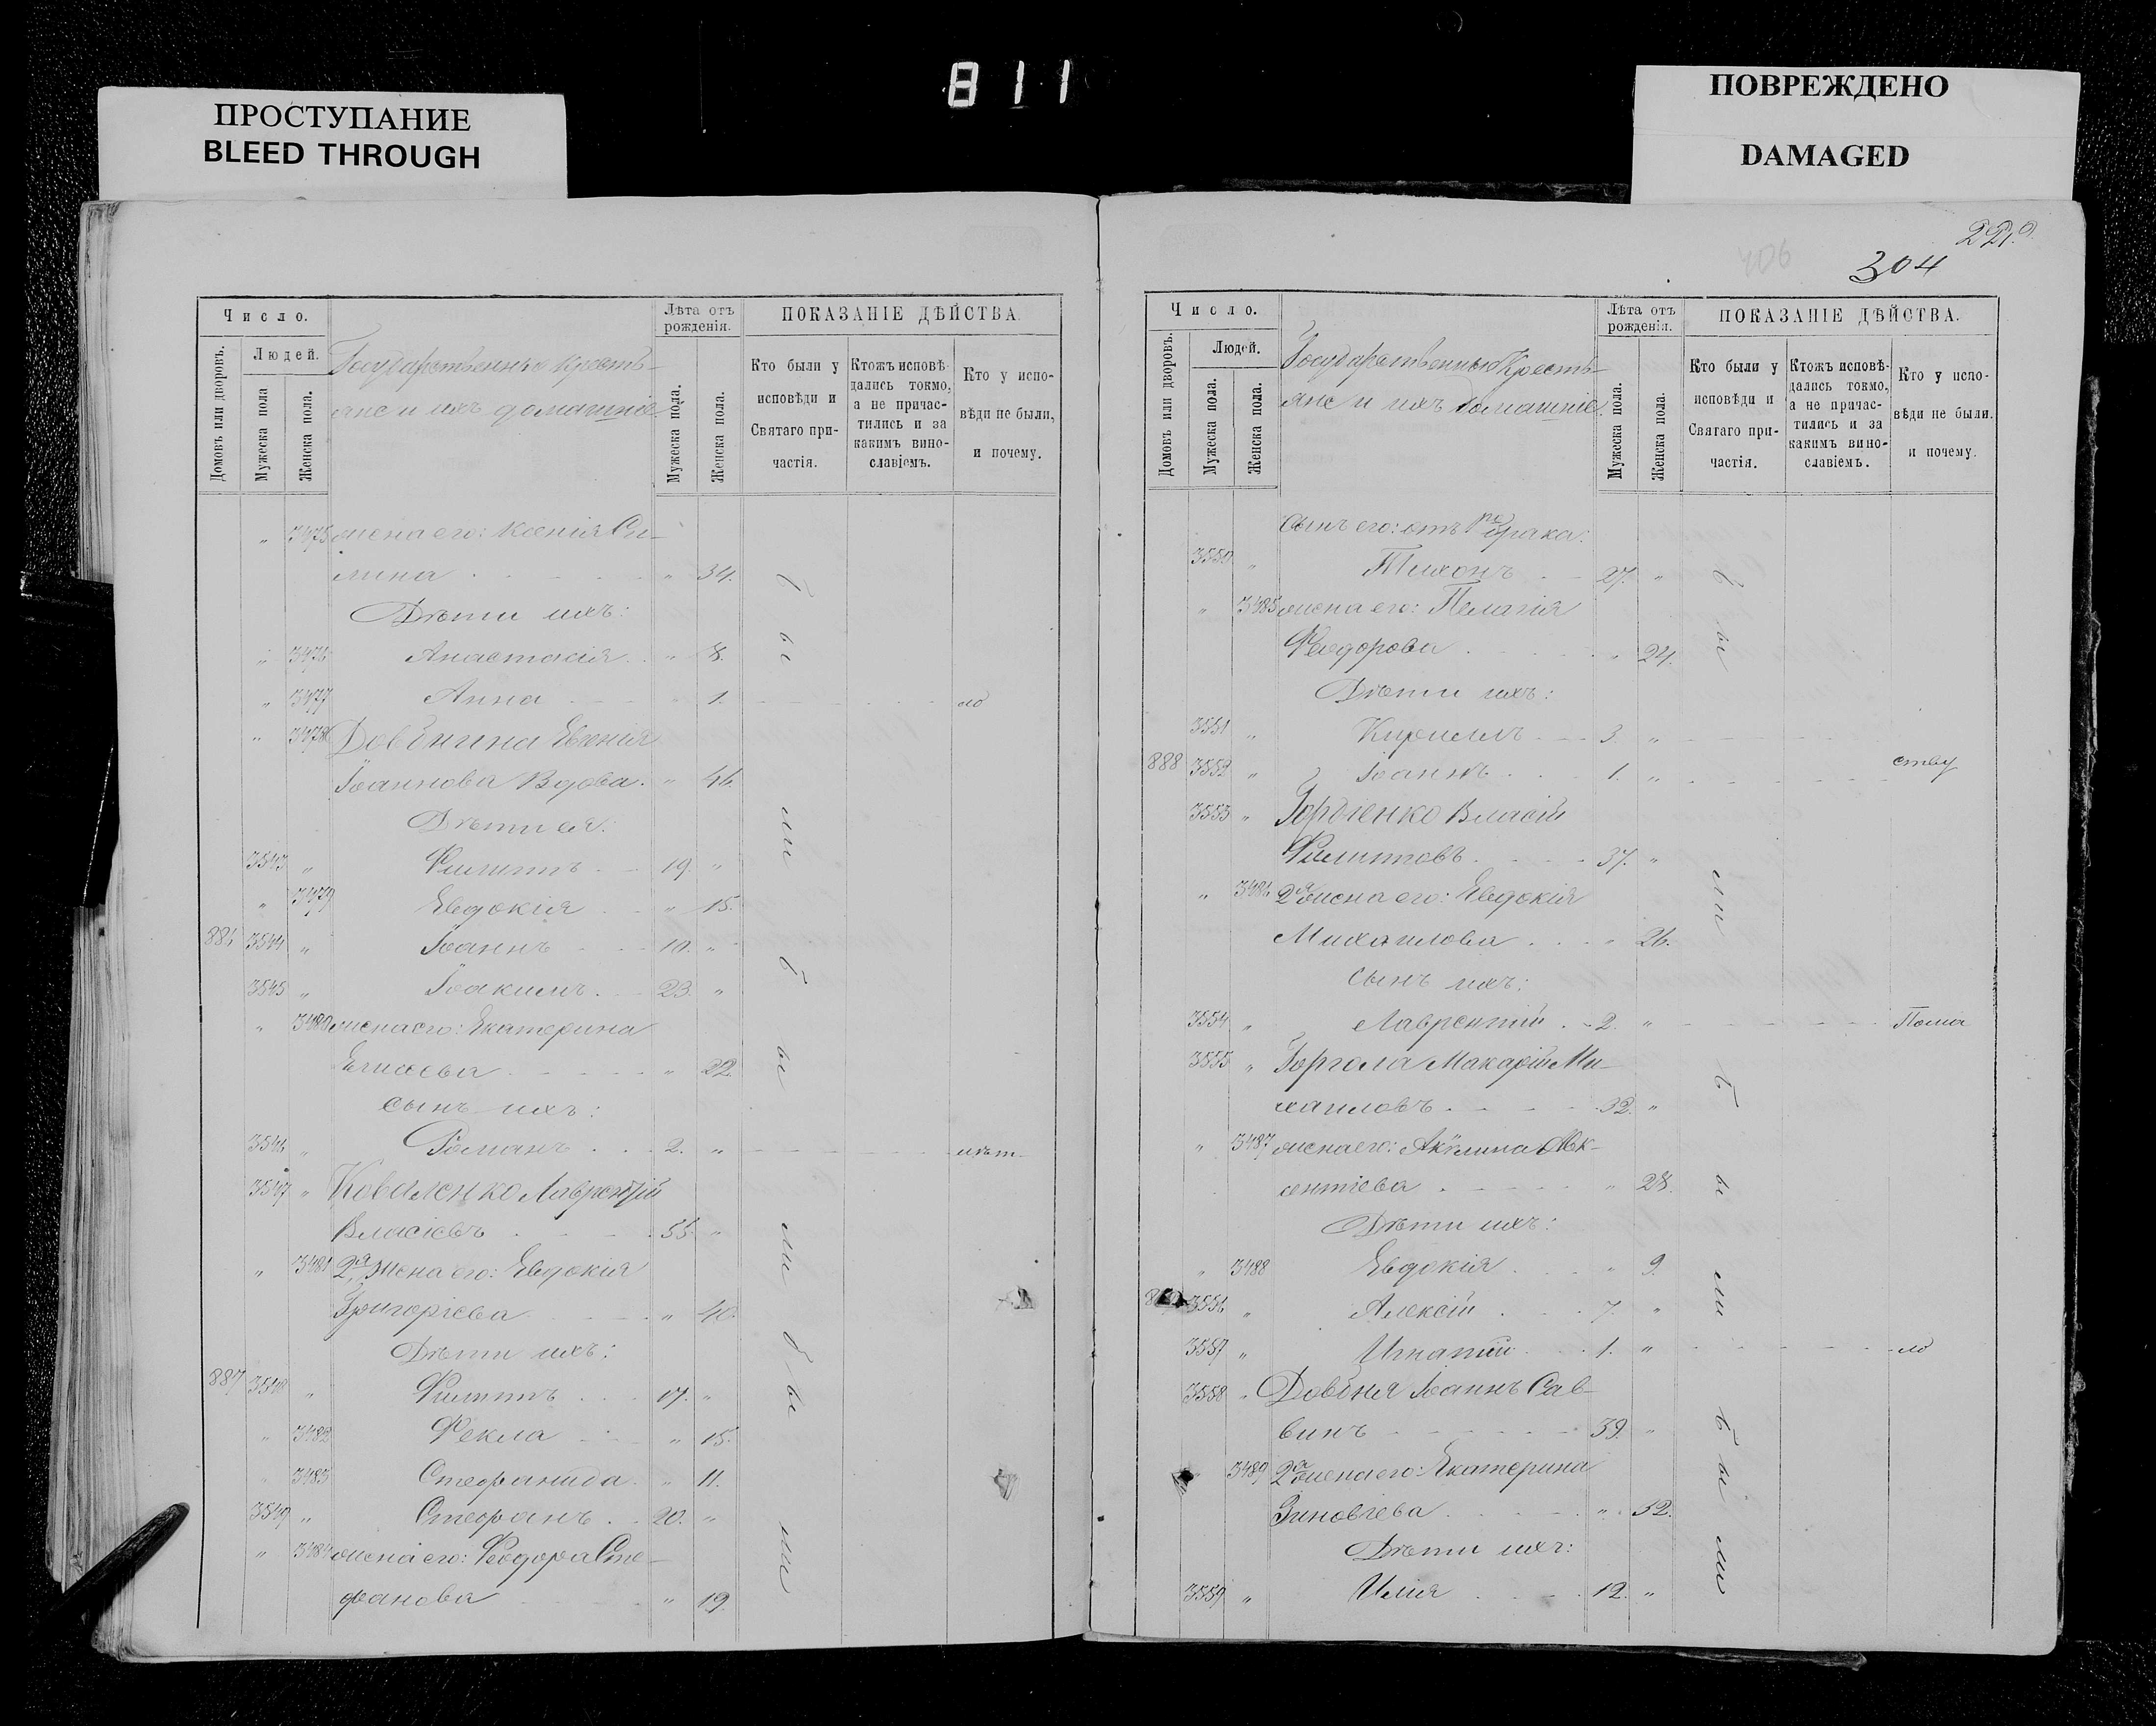 811
ПРОСТУПАНИЕ
BLEED THROUGH
ПОВРЕЖДЕНО
DAMAGED
Число.
Домовъ или дворовъ.
Людей.
Мужеска пола
Женска пола.
Государственные крестъ-
яне и ихъ домашніе
Лѣта отъ рожденія.
Мужеска пола.
Женска пола.
ПОКАЗАНІЕ ДѢЙСТВА.
Кто были у исповѣди и Святаго причастія.
Ктожъ исповѣдались токмо, а не причастились и за какимъ винославіемъ.
Кто у исповѣди не были, и почему.
" 3475 жена его: Ксенія Си-
лина " 34.
Дѣти ихъ:
" 3476 Анастасія " 8.
" 3477 Анна " 1. ло
" 3478 Довбнина Евгенія
Іоаннова Вдова. " 46.
Дѣти ея:
3543 " Филиппъ 19. "
" 3479 Евдокія " 15.
886 3544 " Іоаннъ 10. "
3545 " Іоакимъ 23. "
" 3480 жена его: Екатерина
22.
сынъ ихъ:
3546 " Романъ 2. " лѣт
3547 " Коваленко Лаврентій
Власіевъ 55. "
" 3481 2я жена его: Евдокія
Григоріева " 40.
Дѣти ихъ:
887 3548 " Филиппъ 17. "
" 3482 Фекла " 15.
" 3483 Стефанида " 11.
3549 " Стефанъ 20. "
" 3484 жена его: Феодора Сте-
фанова " 19.
были были были
304
406
Число.
Домовъ или дворовъ.
Людей.
Мужеска пола.
Женска пола.
Государственные Крестъ-
яне и ихъ домашніе
Лѣта отъ рожденія.
Мужеска пола.
Женска пола.
ПОКАЗАНІЕ ДѢЙСТВА.
Кто были у исповѣди и Святаго причастія.
Ктожъ исповѣдались токмо, а не причастились и за какимъ винославіемъ.
Кто у исповѣди не были, и почему.
Сынъ его: отъ 1го брака:
3550 " Тихонъ 27. "
" 3485 жена его: Пелагія
Феодорова " 24.
Дѣти ихъ:
3551 " Кириллъ 3. "
888 3552 " Іоаннъ 1. " ству
3553 " Гордіенко Власій
Филипповъ 37. "
" 3486 2я жена его: Евдокія
Михаилова " 26.
сынъ ихъ:
3554 " Лаврентій 2. " Пома
3555 " Горгола Макарій Ми-
хаиловъ 32. "
" 3487 жена его: Акилина Авк-
сентіева " 28.
Дѣти ихъ:
" 3488 Евдокія " 9.
3556 " Алексій 7. "
3557 " Игнатій 1. " ло
3558 " Довбня Іоаннъ Сав-
винъ 39. "
3489 2я жена его: Екатерина
Зиновіева " 32.
Дѣти ихъ:
3559 " Илія 12. "
были были были